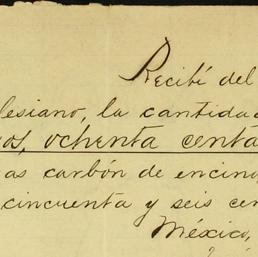 Recibí del
lesiano, la cantida
os, ochenta centa
as carbón de encino
cincuenta y seis cen
México,